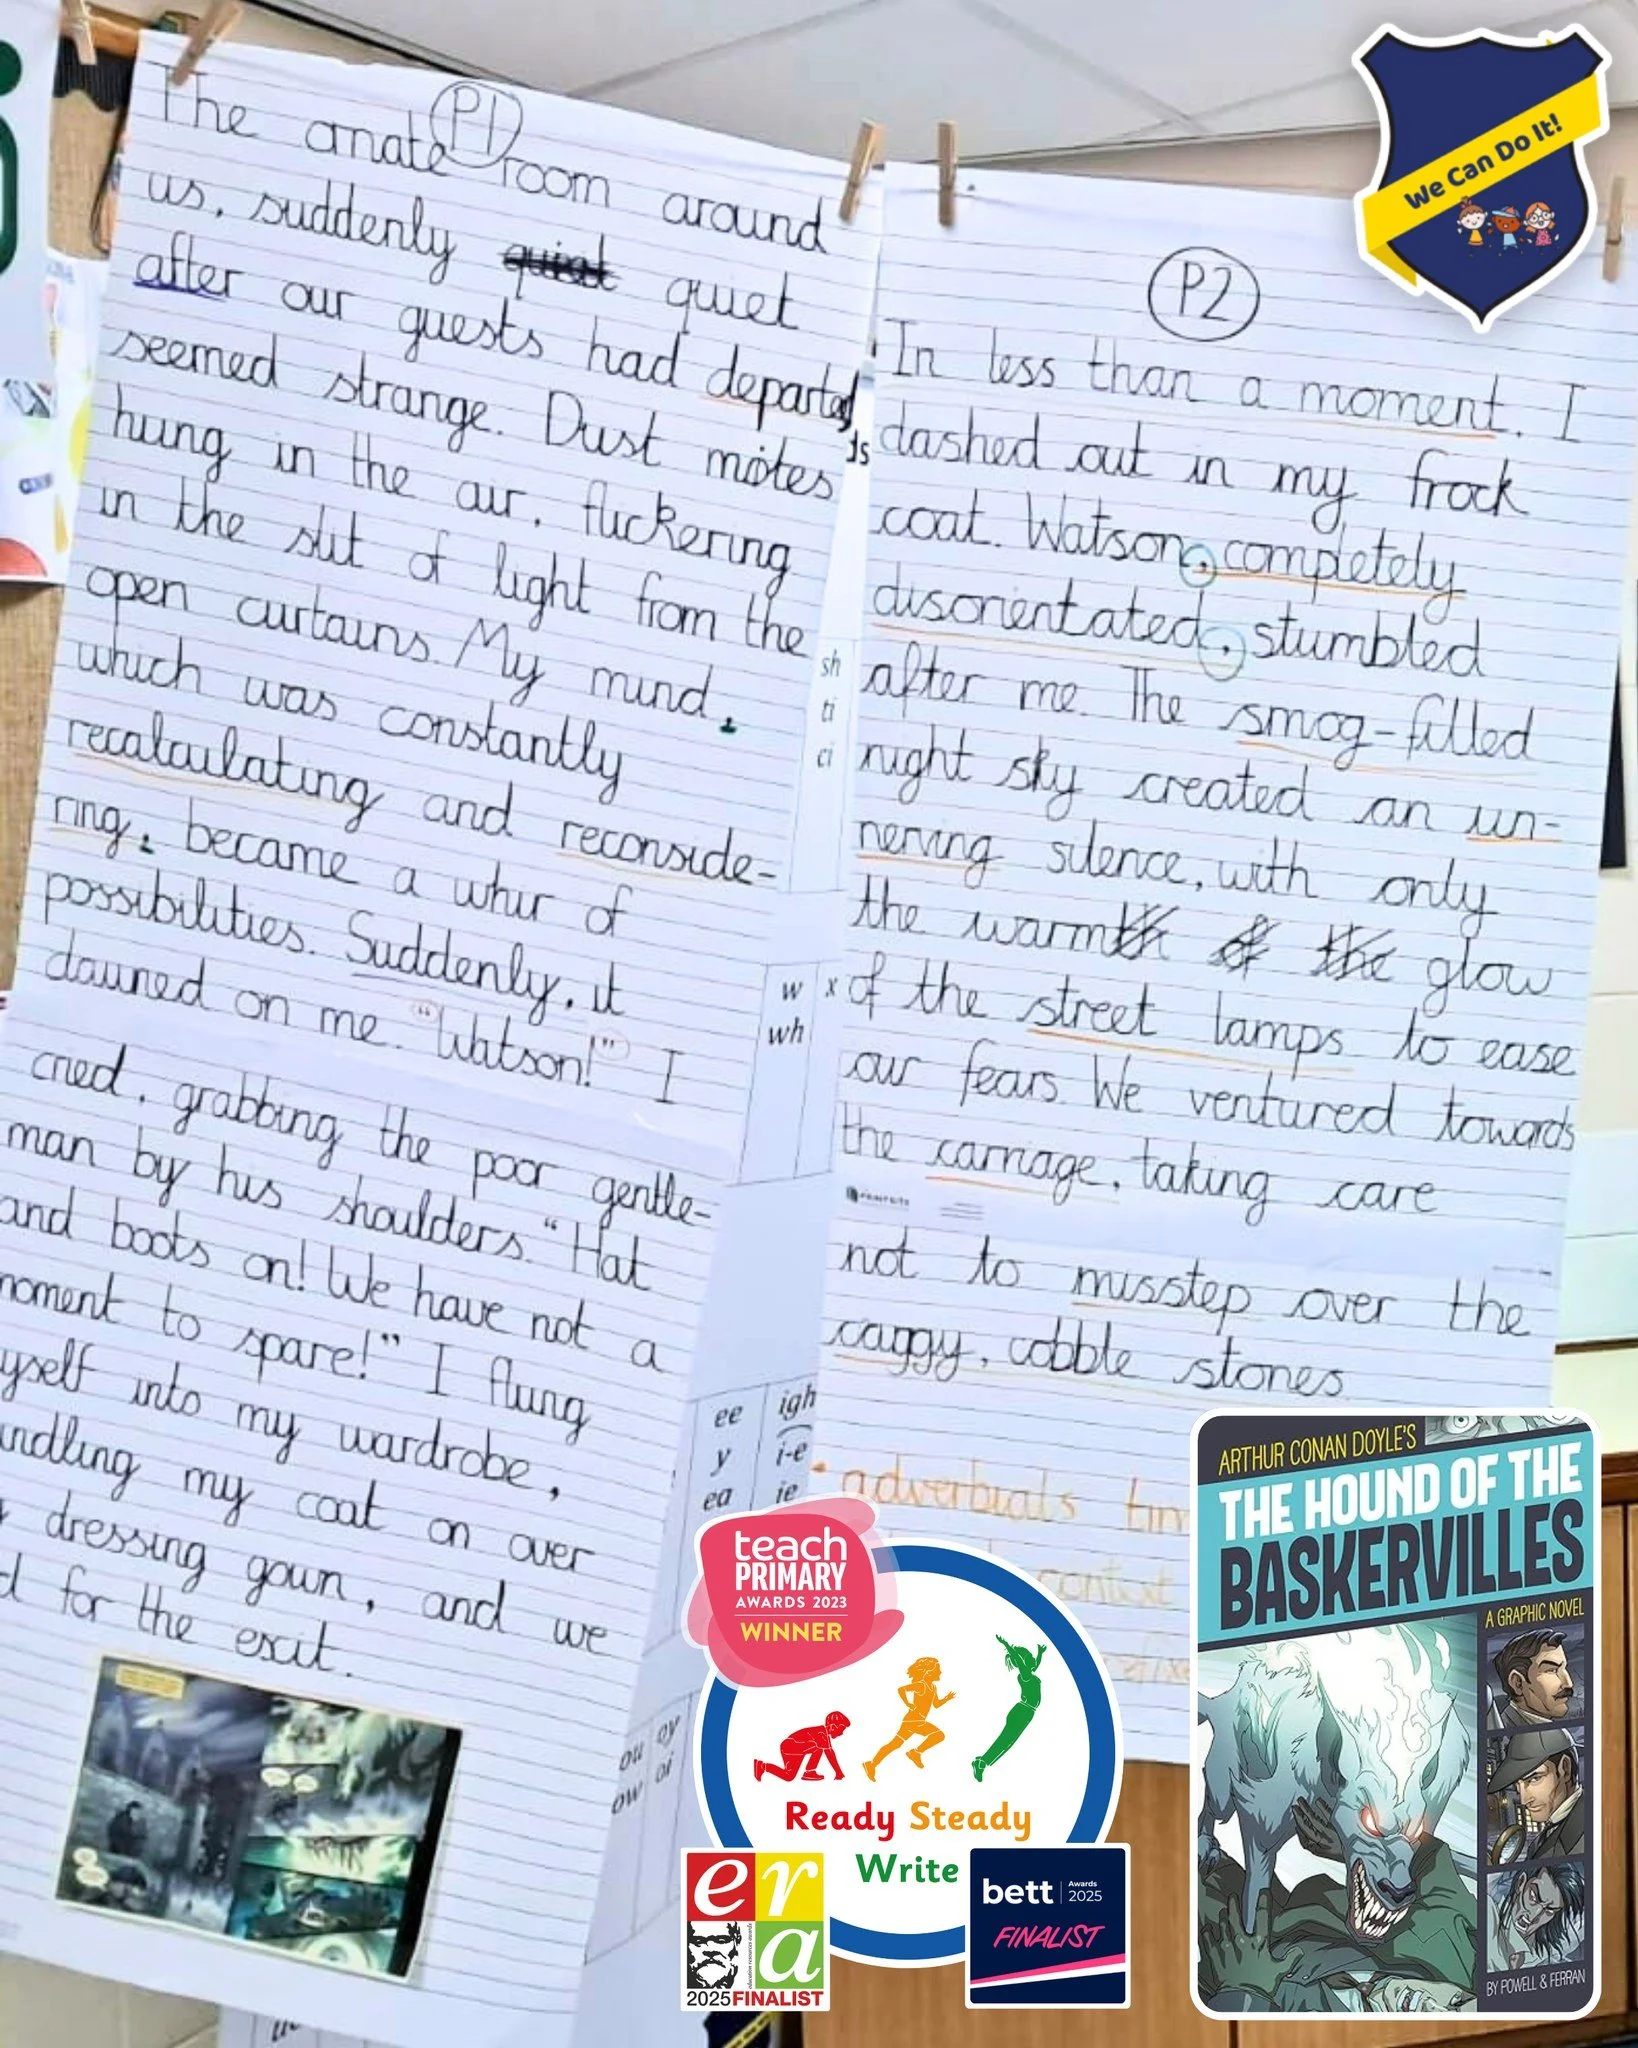 P1
The ornate room around
us, suddenly quiet
after our guests had departed,
seemed strange. Dust motes
hung in the air, flickering
in the slit of light from the
open curtains. My mind,
which was constantly
recalculating and reconside-
ring, became a whir of
possibilities. Suddenly, it
dawned on me. "Watson!" I
cried, grabbing the poor gentle-
man by his shoulders. "Hat
and boots on! We have not a
moment to spare!" I flung
yself into my wardrobe,
ndling my coat on over
dressing gown, and we
d for the exit.
P2
In less than a moment, I
dashed out in my frock
coat. Watson, completely
disorientated, stumbled
after me. The smog-filled
night sky created an un-
nerving silence, with only
the warm glow
of the street lamps to ease
our fears. We ventured towards
the carriage, taking care
not to misstep over the
craggy, cobble stones.
adverbials tim
context
ds
sh
ti
ci
w x
wh
ee igh
y i-e
ea ie
ou oy
ow oi
We Can Do It!
teach
PRIMARY
AWARDS 2023
WINNER
Ready Steady
Write
era
2025 FINALIST
bett Awards 2025
FINALIST
ARTHUR CONAN DOYLE'S
THE HOUND OF THE
BASKERVILLES
A GRAPHIC NOVEL
BY POWELL & FERRAN